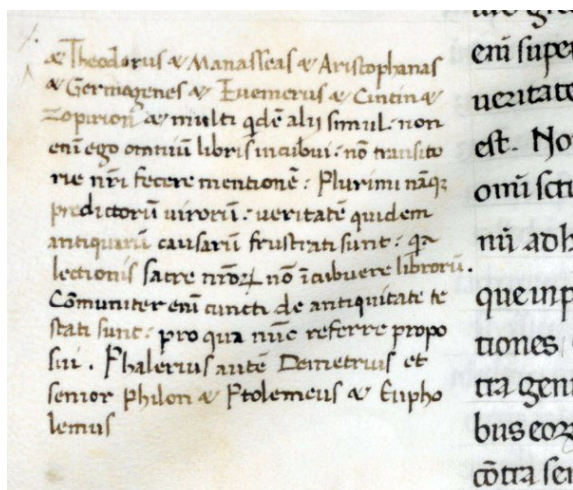 & Theodorus & Manasseas & Aristophanas
& Germogenes & Euemerus & Cintin &
Zopirion & multi qdē alij simul: non
eni ego omniū libris incibui: nō transito
rie nr̄i fecere mentionē: Plurimi nāqꝫ
predictorū virorū: ueritatē quidem
antiquarū causarū frustrati sunt: qa
lectionis sacre nr̄oꝝ nō īcibuere librorū.
Cōmuniter enī cuncti de antiquitate te
stati sunt: pro qua nūc referre propo
sui. Phalerius autē Demetrius et
senior Philon & Ptolemeus & Eupho
lemus
eni supe
ueritate
est. No
omū
nū adh
que inp
tiones
tra gen
bus eoꝝ
cōtra ser